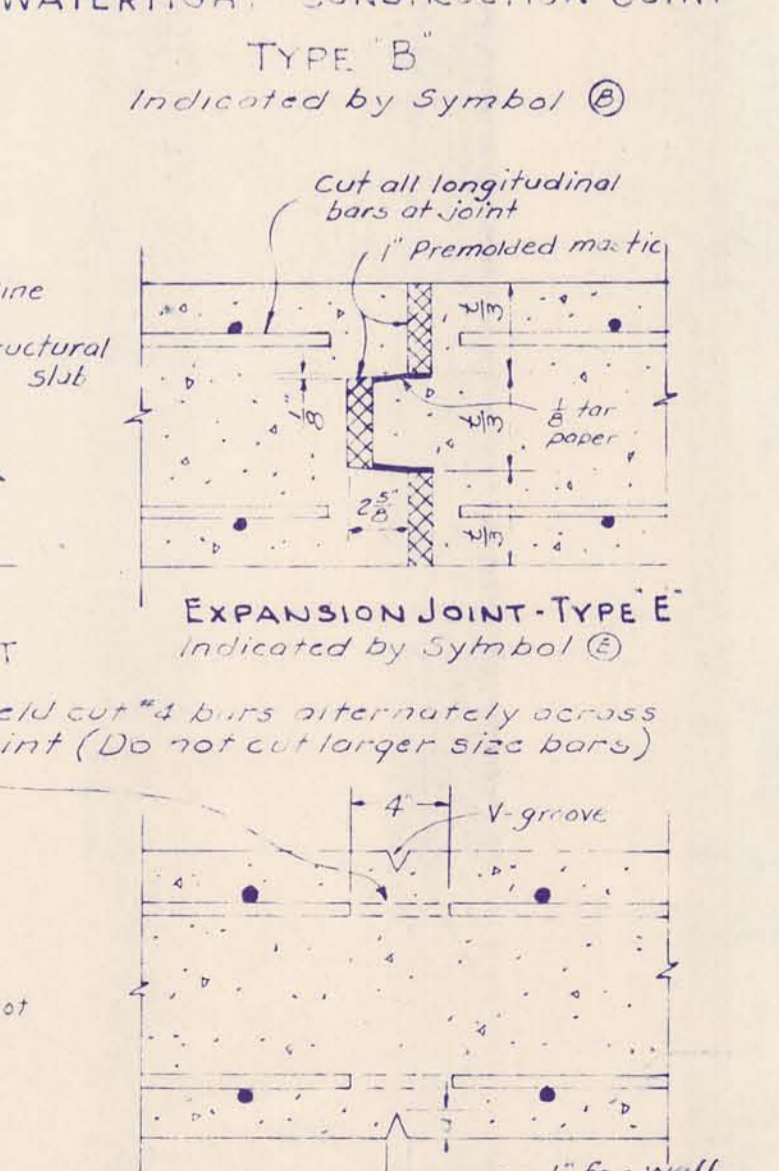 WATERTIGHT CONSTRUCTION JOINT
TYPE "B"
Indicated by Symbol Ⓑ
Cut all longitudinal
bars at joint
1" Premolded mastic
ine
uctural
slab
1/8"
t/3
t/3
t/3
1/8 tar
paper
2 5/8"
EXPANSION JOINT - TYPE "E"
Indicated by Symbol Ⓔ
T
eld cut #4 bars alternately across
int (Do not cut larger size bars)
4"
V-groove
ot
1" for wall